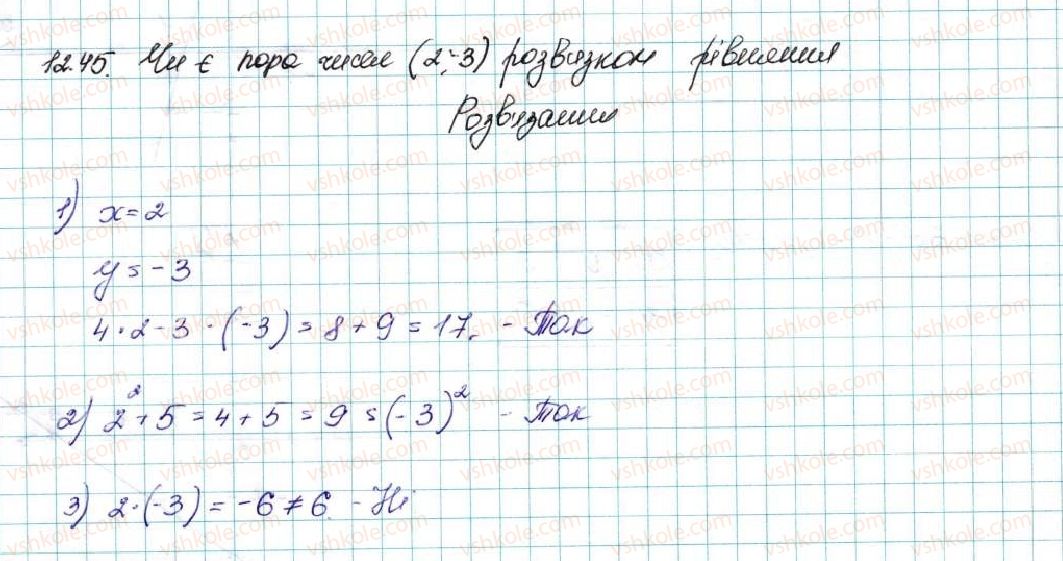 12.45. Чи є пара чисел (2;-3) розв'язком рівняння
Розв'язання
1) x = 2
y = -3
4 · 2 - 3 · (-3) = 8 + 9 = 17. - Так
2) 2² + 5 = 4 + 5 = 9 = (-3)² - Так
3) 2 · (-3) = -6 ≠ 6 - Ні